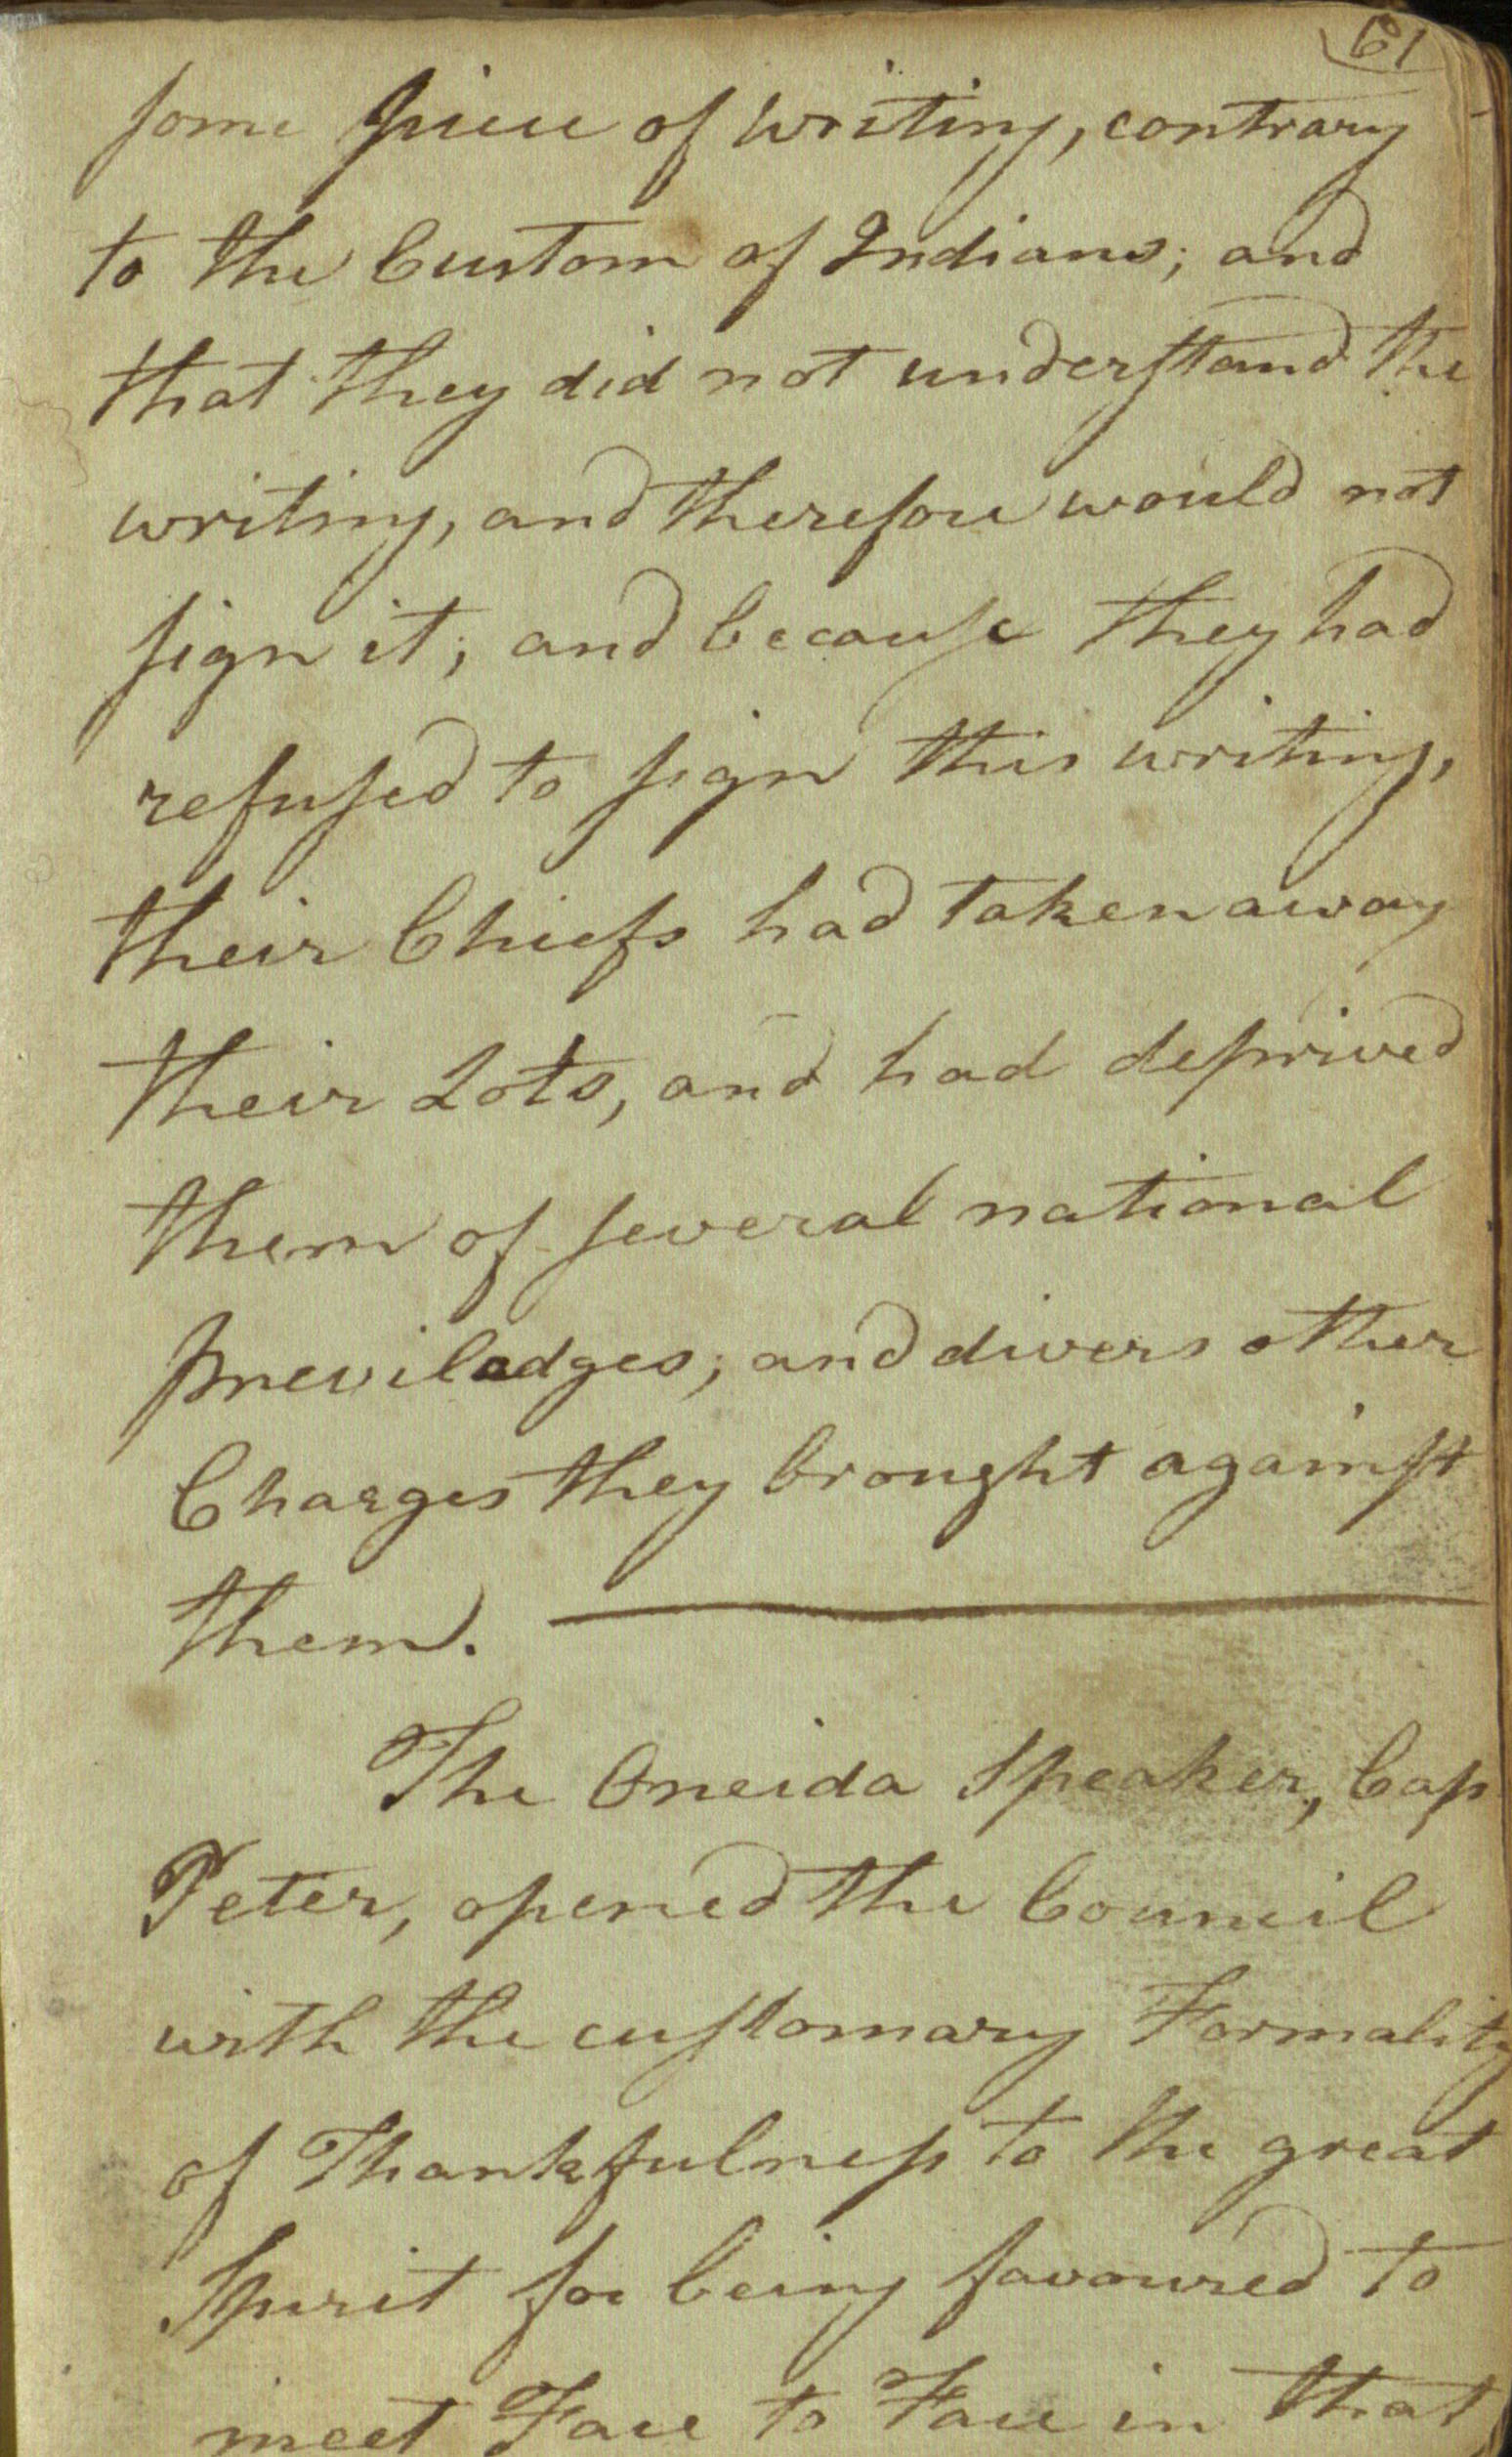 61
some Piece of Writing, contrary
to the Custom of Indians; and
that they did not understand the
writing, and therefore would not
sign it; and because they had
refused to sign this writing,
their Chiefs had taken away
their Lots, and had deprived
them of several national
previledges; and divers other
Charges they brought against
them.
The Oneida Speaker, Cap
Peter, opened the Council
with the customary Formality
of Thankfulness to the great
Spirit for being favoured to
meet Face to Face in that